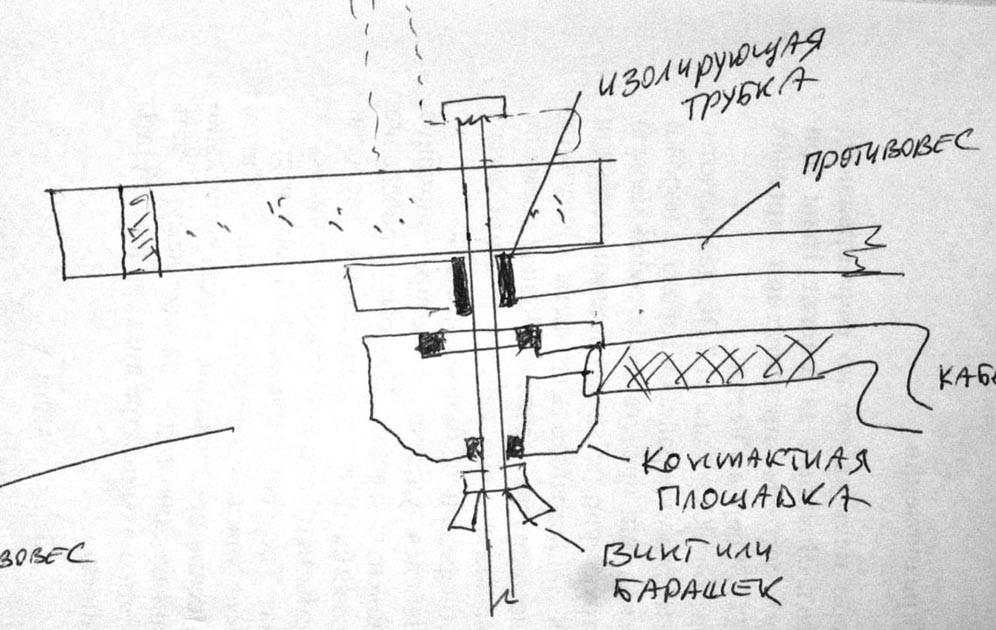 ИЗОЛИРУЮЩАЯ
ТРУБКА
ПРОТИВОВЕС
КАБЕ
КОНТАКТНАЯ
ПЛОЩАДКА
ВИНТ ИЛИ
БАРАШЕК
ЗОВЕС